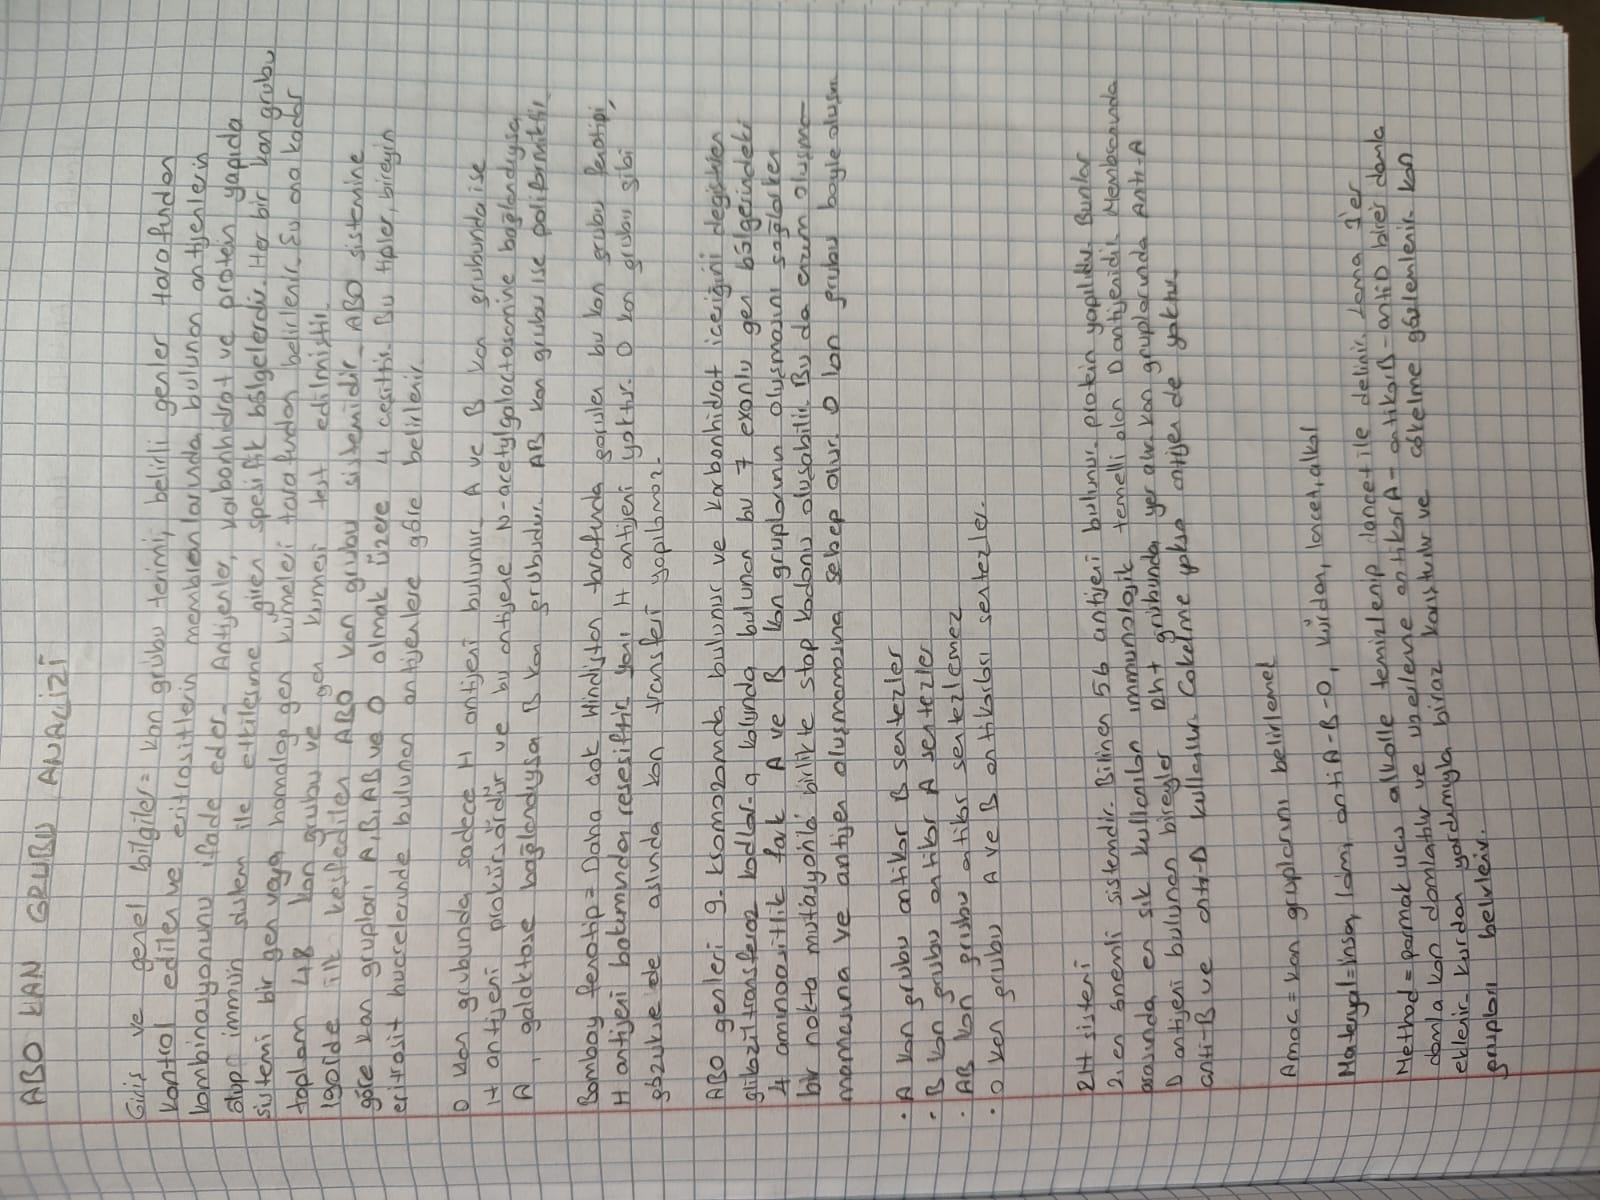 ABO KAN GRUBU ANALİZİ
Giriş ve genel bilgiler= kan grubu terimi, belirli genler tarafından
kontrol edilen ve eritrositlerin membranlarında bulunan antijenlerin
kombinasyonunu ifade eder. Antijenler, karbonhidrat ve protein yapıda
olup immün sistem ile etkileşime giren spesifik bölgelerdir. Her bir kan grubu
sistemi bir gen veya homolog gen kümeleri tarafından belirlenir. Şu ana kadar
toplam 48 kan grubu ve gen kümesi test edilmiştir.
1901de ilk keşfedilen ABO kan grubu sistemidir. ABO sistemine
göre kan grupları A,B,AB ve O olmak üzere 4 çeşittir. Bu tipler, bireyin
eritrosit hücrelerinde bulunan antijenlere göre belirlenir.
O kan grubunda sadece H antijeni bulunur A ve B kan grubunda ise
H antijeni prokürsördür ve bu antijene N-acetylgalactosamine bağlandıysa
A, galaktose bağlandıysa B kan grubudur. AB kan grubu ise polifarmiktir.
Bombay fenotip= Daha çok Hindistan tarafında görülen bu kan grubu fenotipi,
H antijeni bakımından resesiftir yani H antijeni yoktur. O kan grubu gibi
gözükse de aslında kan transferi yapılamaz.
ABO genleri 9. kromozomda bulunur ve karbonhidrat içeriğini değiştiren
glikoziltransferaz kodlar. q kolunda bulunan bu 7 exonlu gen bölgesindeki
4 aminoasitlik fark A ve B kan gruplarının oluşmasını sağlarken
bir nokta mutasyonla birlikte stop kodonu oluşabilir. Bu da enzim oluşma-
mamasına ve antijen oluşmamasına sebep olur. O kan grubu böyle oluşur.
• A kan grubu antikor B sentezler
• B kan grubu antikor A sentezler
• AB kan grubu antikor sentezlemez
• O kan grubu A ve B antikorları sentezler.
RH sistemi
2. en önemli sistemdir. Bilinen 56 antijeni bulunur. protein yapılıdır. Bunlar
arasında en sık kullanılan immunolojik temelli olan D antijenidir. Membranında
D antijeni bulunan bireyler Rh+ grubunda yer alır. kan gruplarında Anti-A
anti-B ve anti-D kullanılır. Çökelme yoksa antijen de yoktur.
Amaç= kan gruplarını belirlemek
Materyal= insan, lam, anti A-B-D, kürdan, lancet, alkol
Method= parmak ucu alkolle temizlenip lancet ile delinir. Lama 1'er
damla kan damlatılır ve üzerlerine antikor A- antikor B- anti D birer damla
eklenir. kürdan yardımıyla biraz karıştırılır ve çökelme gözlemlenir. kan
grupları belirlenir.